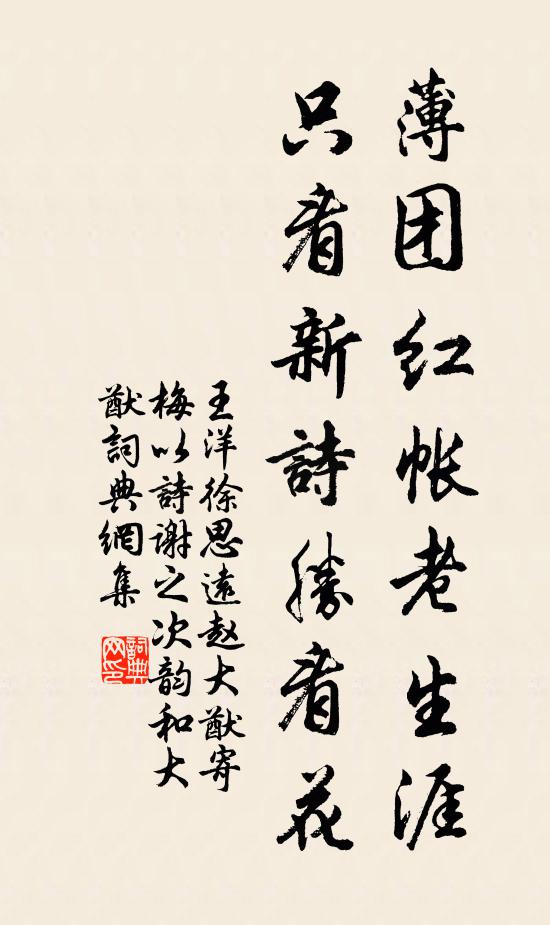 薄团红帐老生涯
只看新詩勝看花
王洋徐思遠赵大猷寄
梅以詩谢之次韵和大
猷詞典網集
詞典
网印